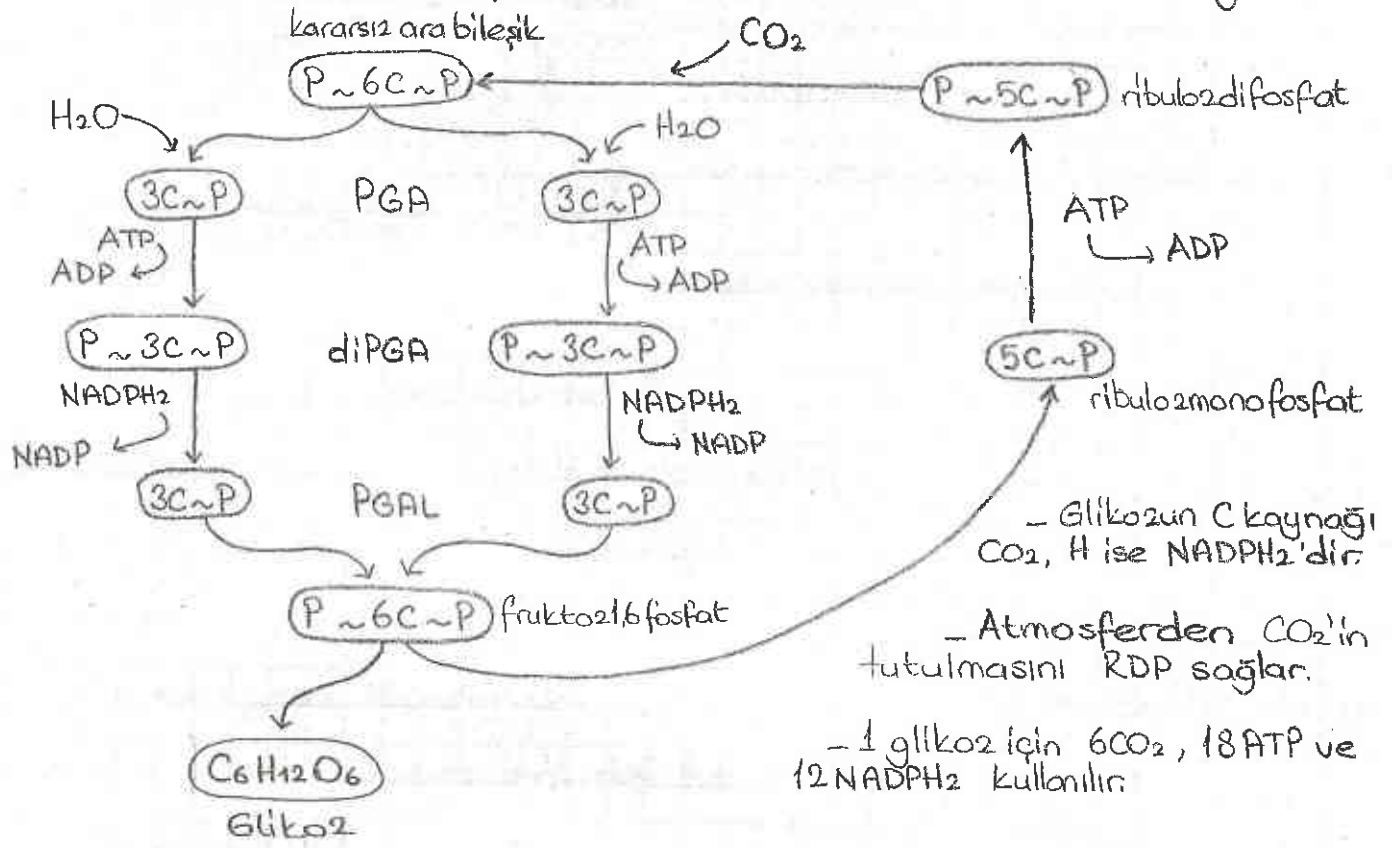 kararsız ara bileşik
CO₂
P ~ 6C ~ P
P ~ 5C ~ P
ribulozdifosfat
H₂O
H₂O
3C ~ P
PGA
3C ~ P
ATP
ADP
ATP
ADP
ATP
ADP
P ~ 3C ~ P
diPGA
P ~ 3C ~ P
5C ~ P
ribulozmonofosfat
NADPH₂
NADP
NADPH₂
NADP
3C ~ P
PGAL
3C ~ P
P ~ 6C ~ P
fruktoz1,6 fosfat
C₆H₁₂O₆
Glikoz
- Glikozun C kaynağı
CO₂, H ise NADPH₂'dir.
- Atmosferden CO₂'in
tutulmasını RDP sağlar.
- 1 glikoz için 6CO₂, 18 ATP ve
12 NADPH₂ kullanılır.